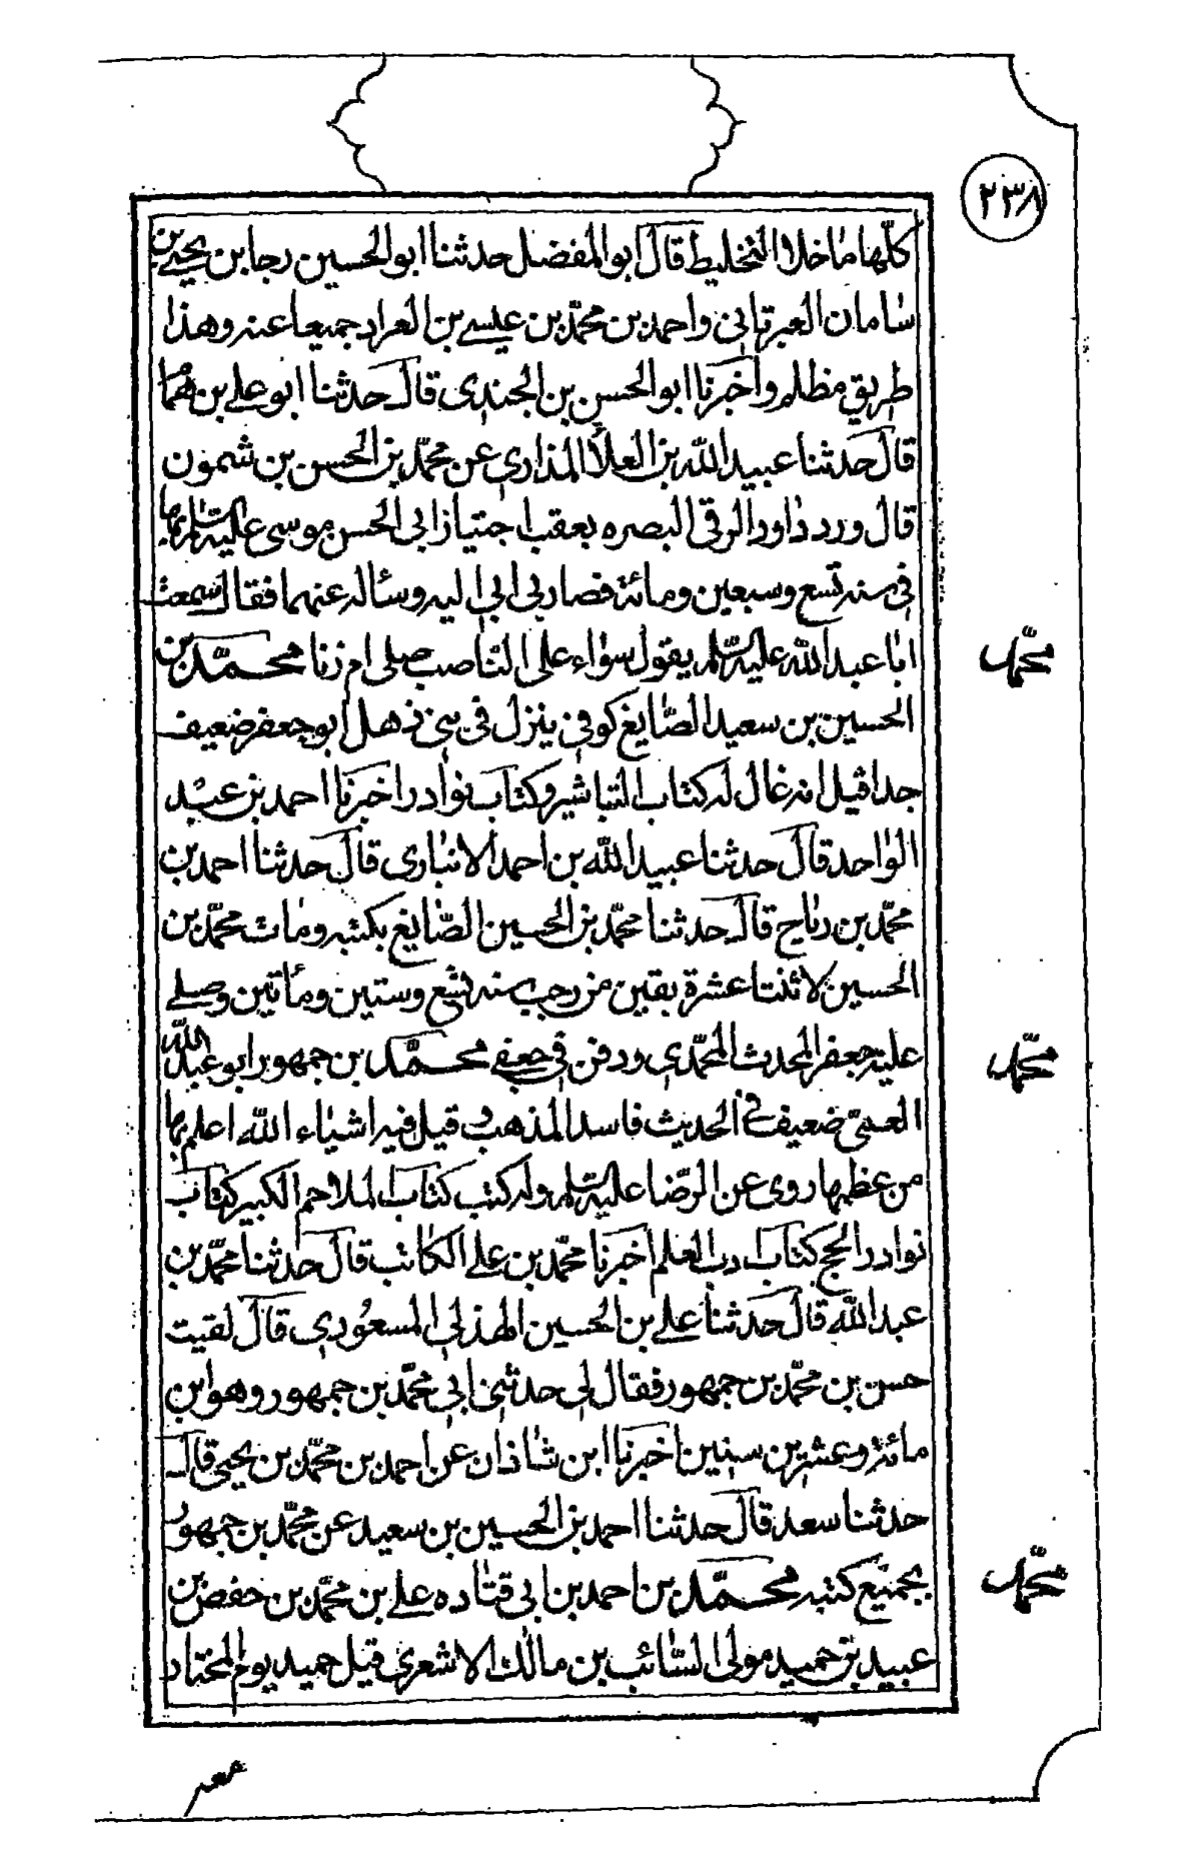 ٢٣٨
كلّها ما خلا التخليط قال ابو المفضل حدثنا ابو الحسين رجا بن يحيى بن
سامان العبرتائى واحمد بن محمّد بن عيسى بن العراد جميعا عنه وهذا
طريق مظلم واخبرنا ابو الحسن بن الجندى قال حدثنا ابو على بن همام
قال حدثنا عبيد الله بن العلا المذارى عن محمّد بن الحسن بن شمون
قال ورد داود الرقى البصره بعقب اجتياز ابى الحسن موسى عليه السّلام بها
فى سنه تسع وسبعين ومائة فصار بى ابى اليه وساله عنهما فقال سمعت
ابا عبد الله عليه السّلم يقول سواء على الناصب صلى ام زنا محمّد بن
الحسين بن سعيد الصّايغ كوفى ينزل فى بنى ذهل ابو جعفر ضعيف
جدا قيل انه غال له كتاب التباشير وكتاب نوادر اخبرنا احمد بن عبد
الواحد قال حدثنا عبيد الله بن احمد الانبارى قال حدثنا احمد بن
محمّد بن رباح قال حدثنا محمّد بن الحسين الصّايغ بكتبه ومات محمّد بن
الحسين لاثنتا عشرة بقين من رجب سنه تسع وستين ومأتين وصلى
عليه جعفر المحدث المحمّدى ودفن فى جعفى محمّد بن جمهور ابو عبد الله
العمىّ ضعيف فى الحديث فاسد المذهب وقيل فيه اشياء الله اعلم بها
من عظمها روى عن الرّضا عليه السّلم وله كتب كتاب الملاحم الكبير كتاب
نوادر الحج كتاب ادب العلم اخبرنا محمّد بن على الكاتب قال حدثنا محمّد بن
عبد الله قال حدثنا على بن الحسين الهذلى المسعودى قال لقيت
حسن بن محمّد بن جمهور فقال لى حدثنى ابى محمّد بن جمهور وهو ابن
مائة وعشر بن سنين اخبرنا ابن شاذان عن احمد بن محمّد بن يحيى قال
حدثنا سعد قال حدثنا احمد بن الحسين بن سعيد عن محمّد بن جمهور
بجميع كتبه محمّد بن احمد بن ابى قتاده على بن محمّد بن حفص بن
عبيد بن حميد مولى السّائب بن مالك الاشعرى قيل حميد يوم المختار
محمّد
محمّد
محمّد
معه